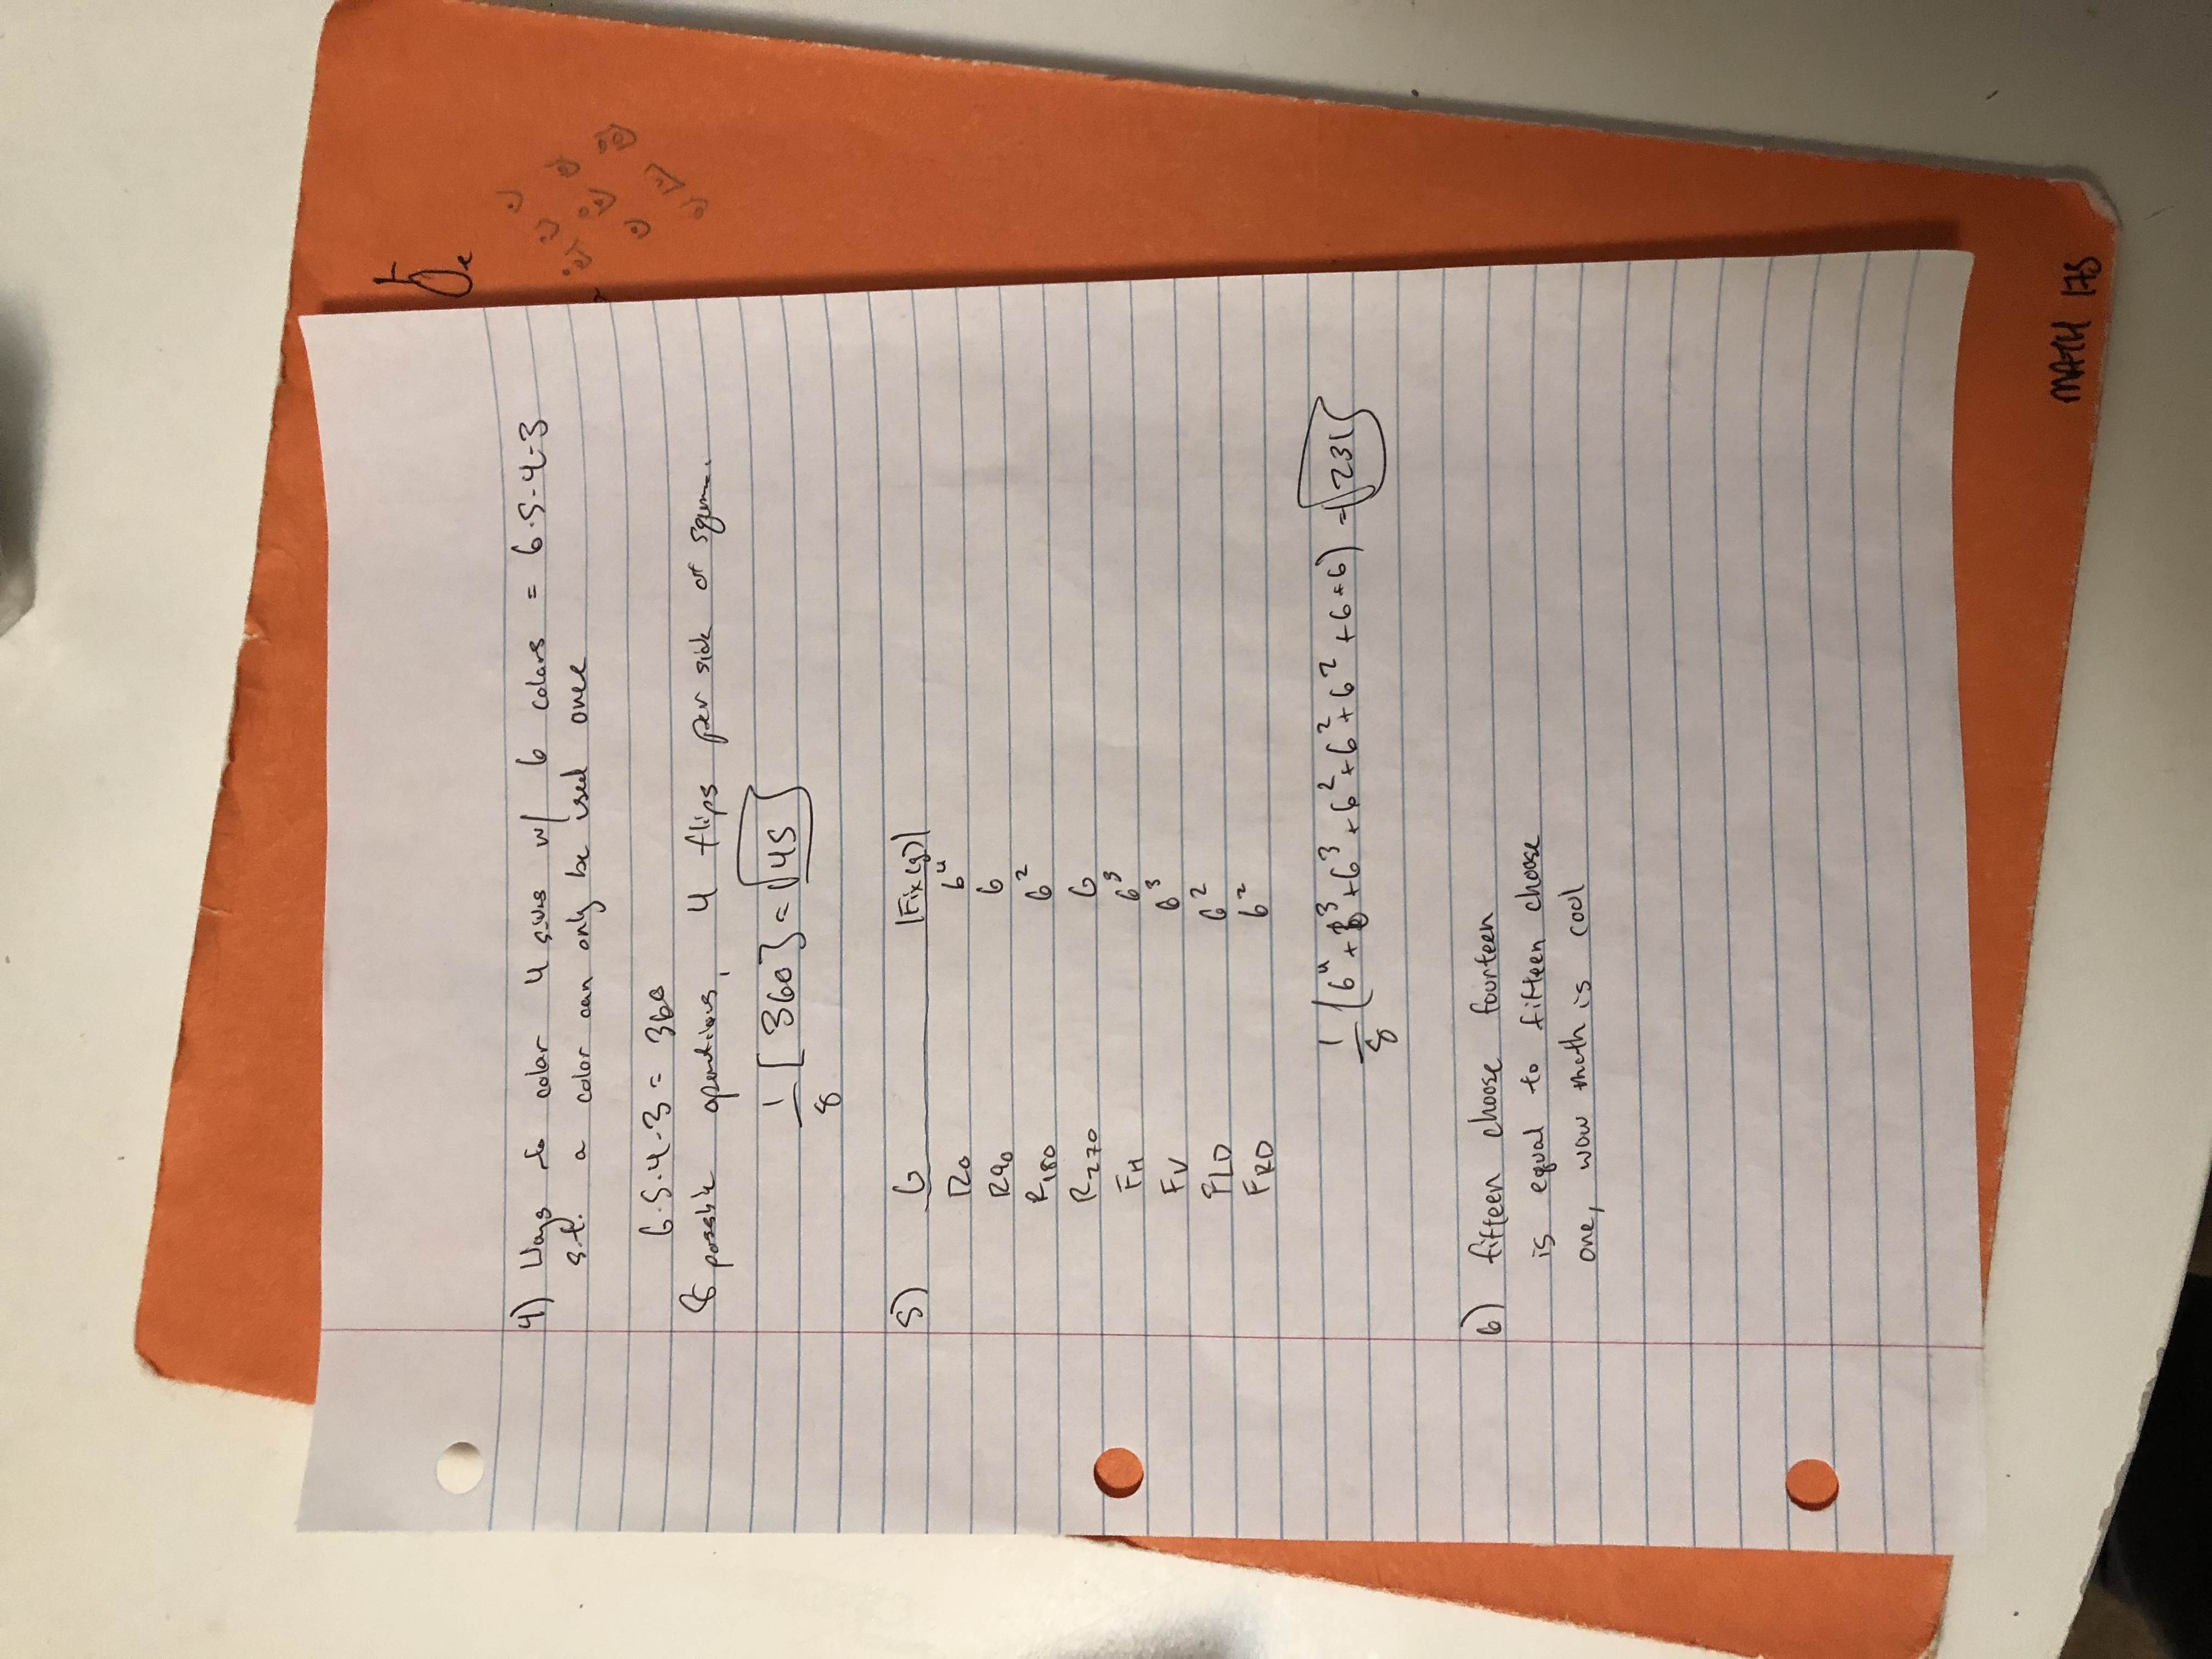 4) Ways to color 4 sides w/ 6 colors = 6·5·4·3
s.t. a color can only be used once
6·5·4·3 = 360
8 possible operations, 4 flips per side of square.
1/8 [360] = 45
5) G |Fix(g)|
R0 6⁴
R90 6
R180 6²
R270 6
FH 6³
FV 6³
FLD 6²
FRD 6²
1/8 (6⁴ + 6³ + 6³ + 6² + 6² + 6² + 6 + 6) = 231
6) fifteen choose fourteen
is equal to fifteen choose
one, wow math is cool
MATH 175